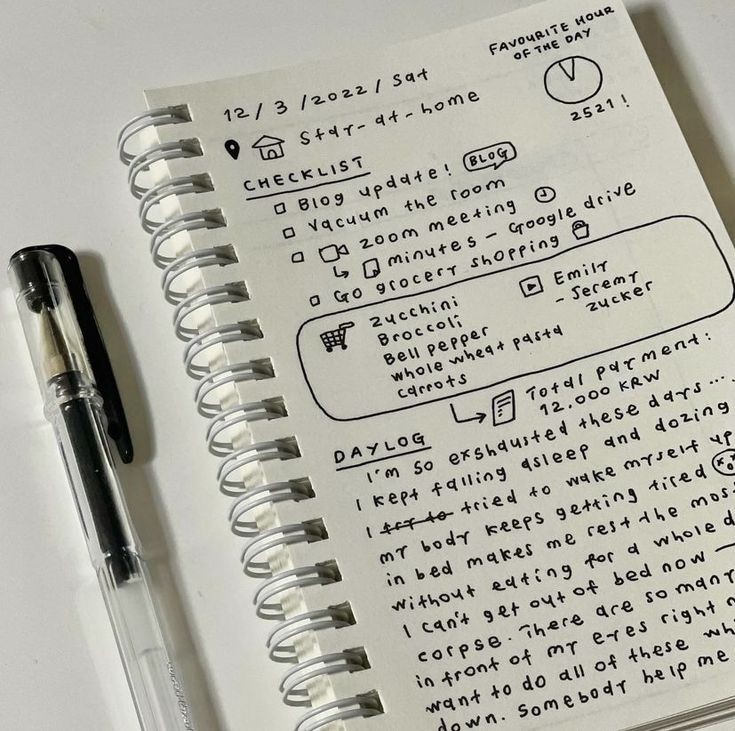 FAVOURITE HOUR
OF THE DAY
2521!
12/3/2022/Sat
Stay-at-home
CHECKLIST
Blog update! BLOG
Vacuum the room
zoom meeting
minutes - Google drive
Go grocery shopping
zucchini
Broccoli
Bell pepper
whole wheat pasta
carrots
Emily
- Jeremy
zucker
Total payment:
12.000 KRW
DAYLOG
I'm so exshausted these days....
I kept falling asleep and dozing
I try to tried to wake myself up
my body keeps getting tired
in bed makes me rest the mos
without eating for a whole d
I can't get out of bed now —
corpse. There are so many
in front of my eyes right
want to do all of these wh
down. Somebody help me